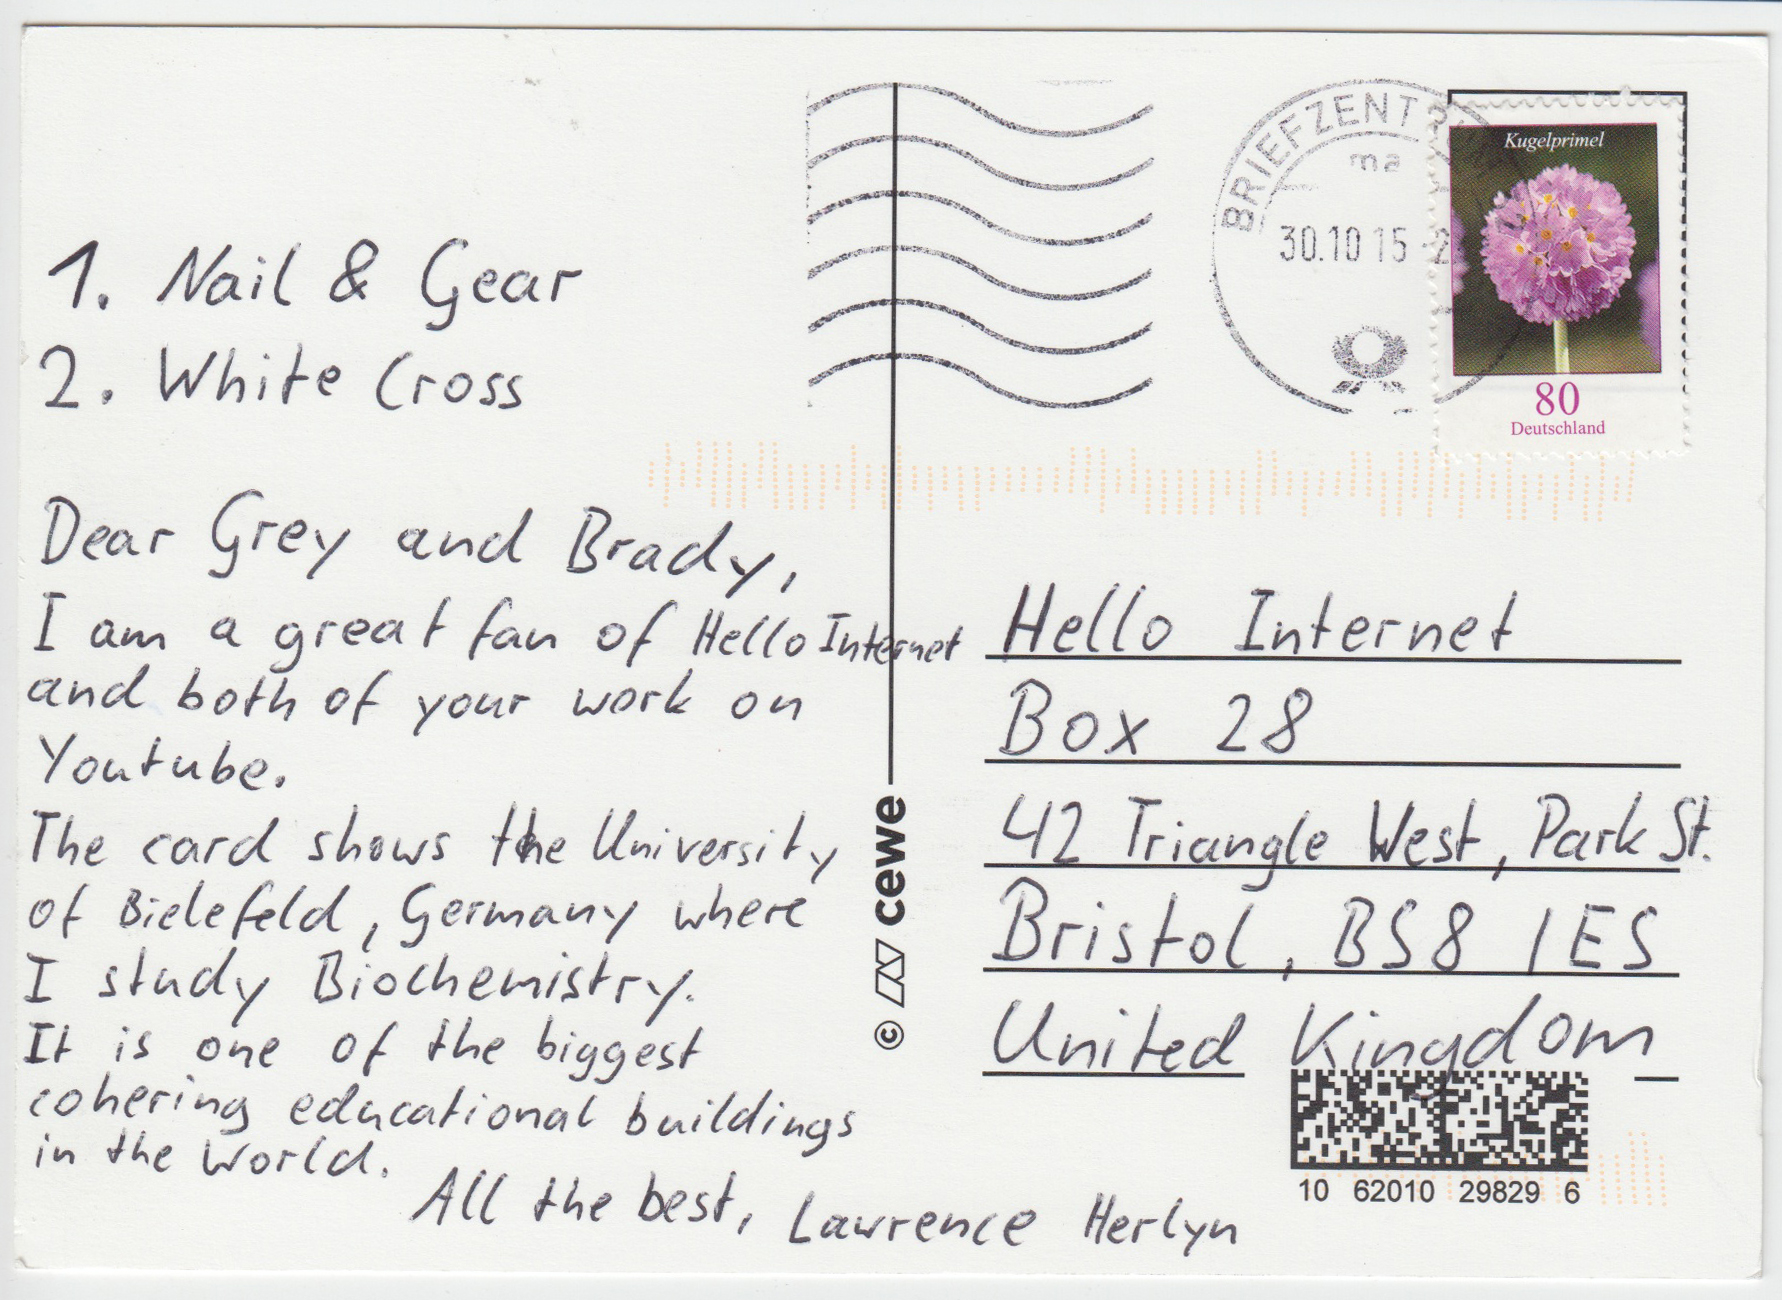 1. Nail & Gear
2. White Cross
Dear Grey and Brady,
I am a great fan of Hello Internet
and both of your work on
Youtube.
The card shows the University
of Bielefeld, Germany where
I study Biochemistry.
It is one of the biggest
cohering educational buildings
in the world.
All the best, Lawrence Herlyn
© cewe
BRIEFZENTR
ma
30.10 15 -2
Kugelprimel
80
Deutschland
Hello Internet
Box 28
42 Triangle West, Park St.
Bristol, BS8 1ES
United Kingdom
10 62010 29829 6